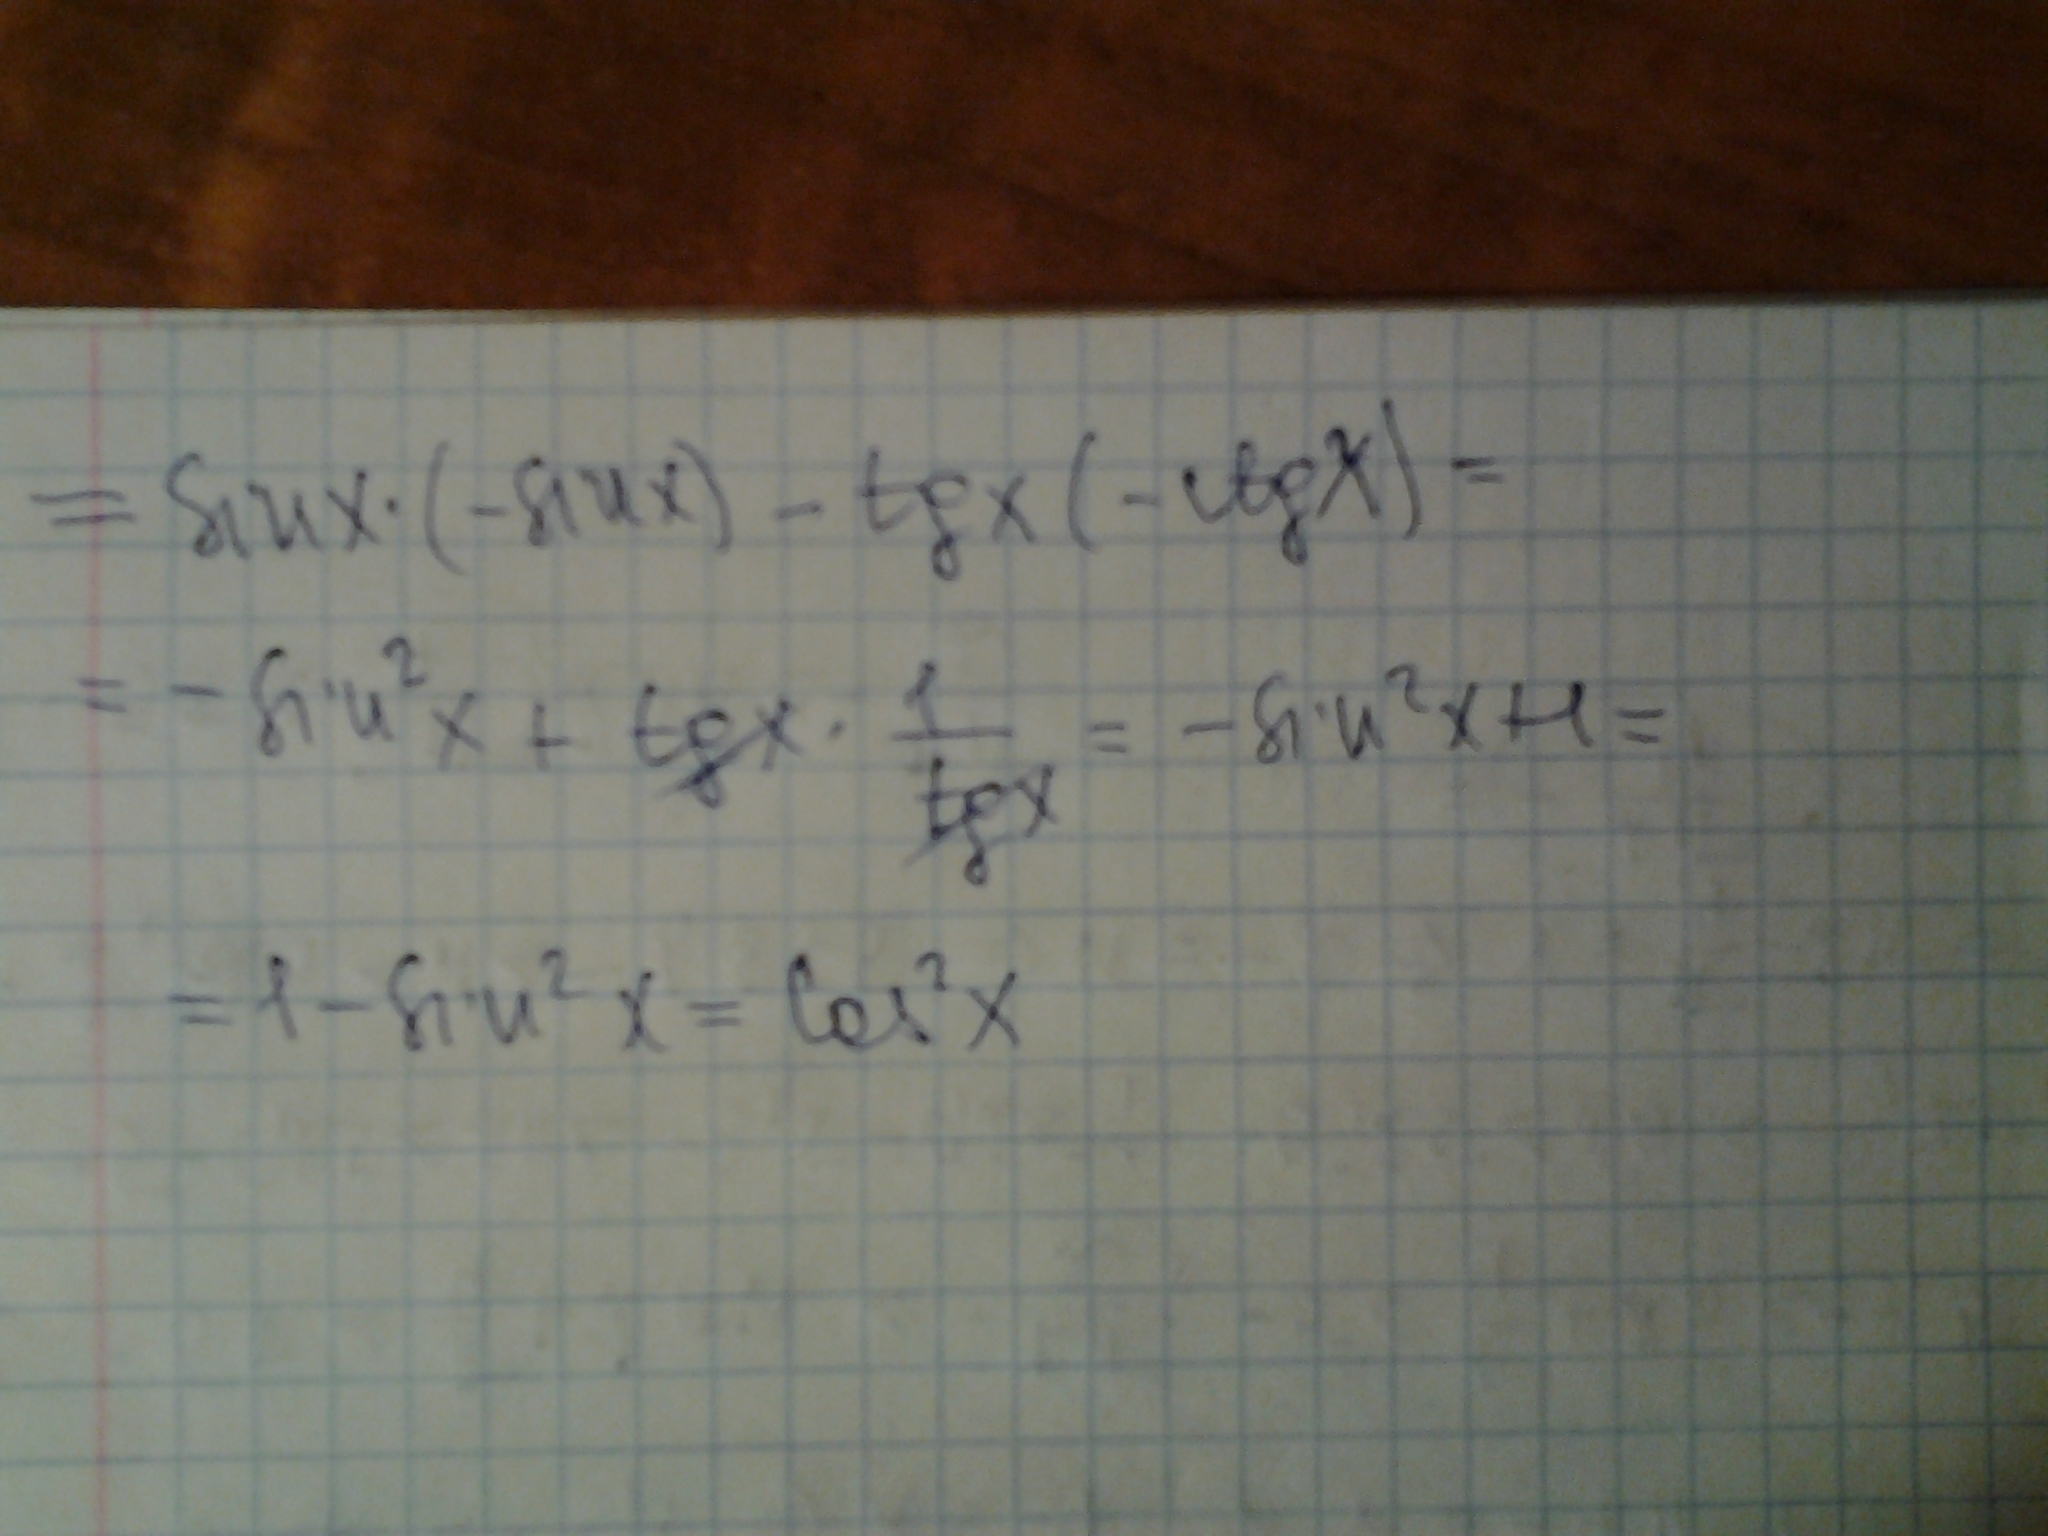 = sin x · (-sin x) - tg x (-ctg x) =
= - sin² x + tg x · 1/tg x = - sin² x + 1 =
= 1 - sin² x = cos² x